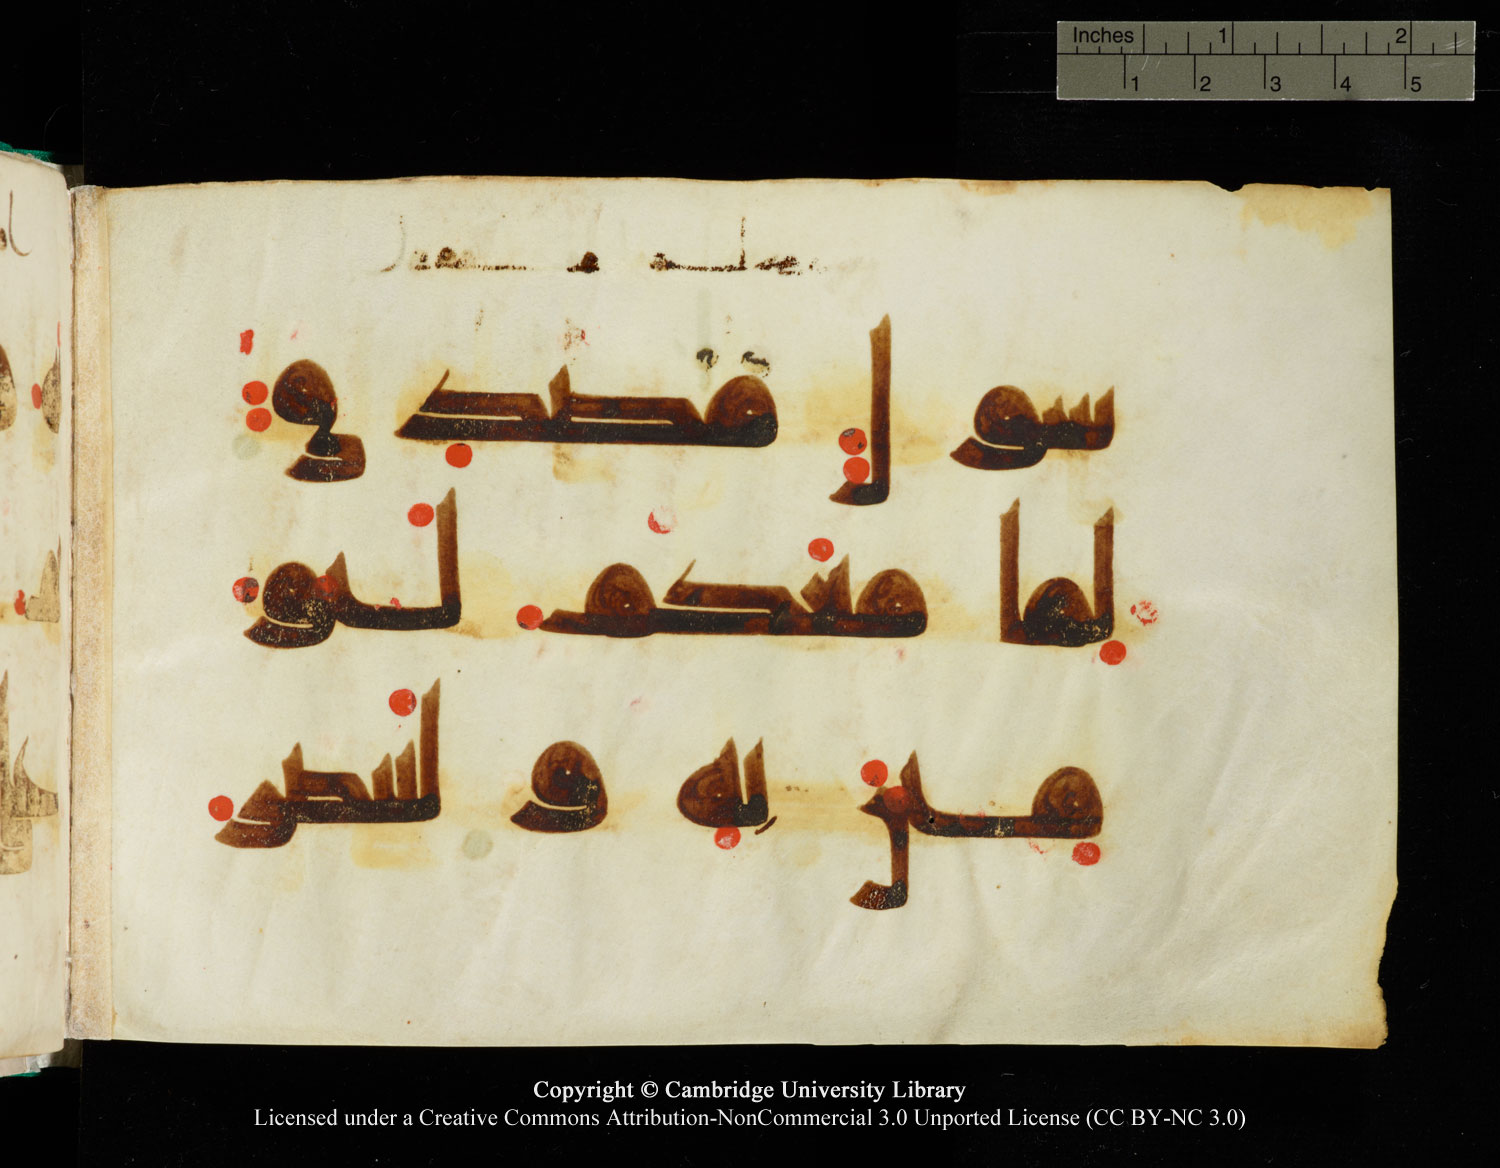 Inches 1 2
1 2 3 4 5
سول مصدق
لما معكم لتو
منن به و لتنصر
Copyright © Cambridge University Library
Licensed under a Creative Commons Attribution-NonCommercial 3.0 Unported License (CC BY-NC 3.0)